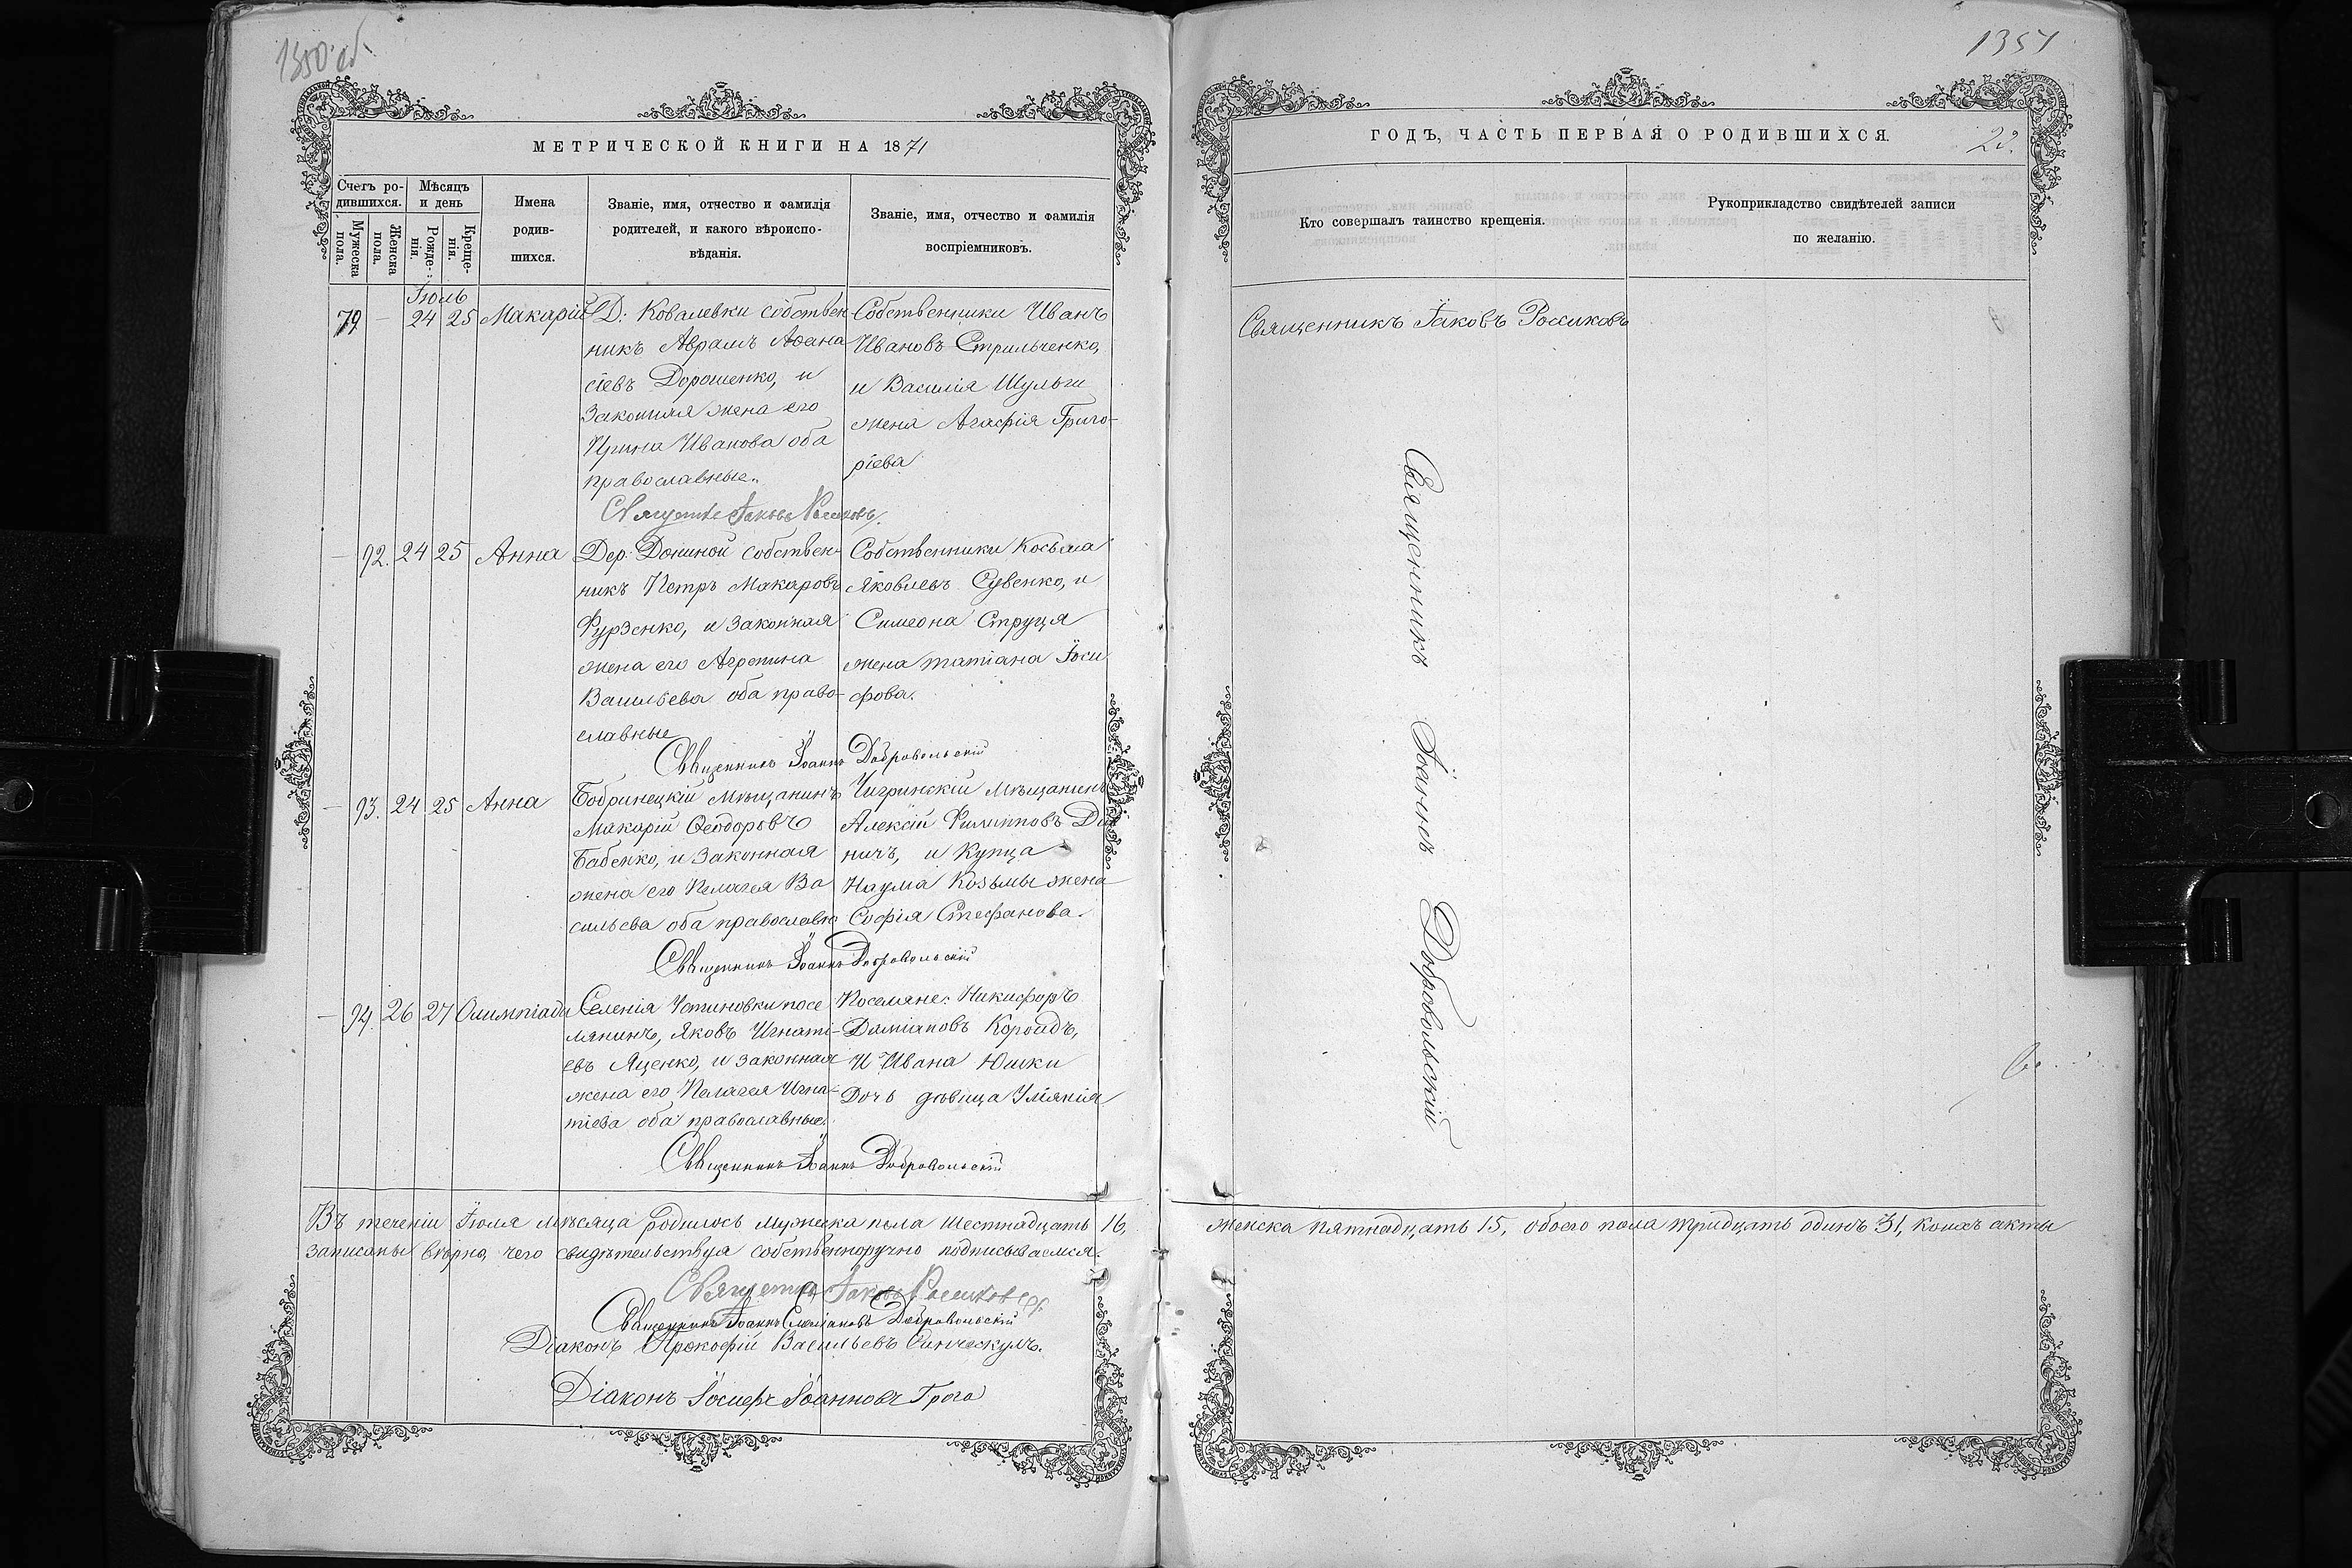 1350 об.
МЕТРИЧЕСКОЙ КНИГИ НА 1871
Счетъ ро-
дившихся.
Мѣсяцъ
и день
Мужеска
пола.
Женска
пола.
Рожде-
нія.
Креще-
нія.
Имена
родив-
шихся.
Званіе, имя, отчество и фамилія
родителей, и какого вѣроиспо-
вѣданія.
Званіе, имя, отчество и фамилія
воспріемниковъ.
Іюль
79 – 24 25 Макарій
Д: Ковалевки собствен
никъ Аврамъ Аѳана
сіевъ Дорошенко, и
законная жена его
Ирина Иванова оба
православные.
Собственники Иванъ
Ивановъ Стрильченко,
и Василія Шульги
жена Агафія Григо-
ріева
Священ Іаковъ Россиковъ
– 92. 24 25 Анна
Дер. собствен-
никъ Петръ Макаровъ
Фурзенко, и законная
жена его Агрепина
Васильева оба право-
славные
Собственники Косьма
Яковлевъ Сувенко, и
Симеона Струця
жена татіана Іоси
фова.
Священникъ Іоаннъ Добровольскій
– 93. 24 25 Анна
Бобринецкій мѣщанинъ
Макарій Ѳеодоровъ
Бабенко, и законная
жена его Пелагея Ва
сильева оба православн
Чигринскій мѣщанинъ
Алексій Филипповъ
ничъ, и Купца
Наума Козьмы жена
Софія Стефанова.
Священникъ Іоаннъ Добровольскій
– 94. 26 27 Олимпіада
Селенія Устиновки посе
лянинъ, Яковъ Игнаті-
евъ Яценко, и законная
жена его Пелагея Игна-
тіева оба православные.
Поселяне: Никифоръ
Даміановъ Короидъ,
и Ивана Юшки
Дочь дѣвица Уліянія
Священникъ Іоаннъ Добровольскій
Въ теченіи Іюля мѣсяца родилось мужеска пола шестнадцать 16,
записаны вѣрно, чего свидѣтельствуя собственноручно подписываемся.
Священникъ Іаковъ Россиковъ
Священникъ Іоаннъ Добровольскій
Діаконъ Прокофій Васильевъ
Діаконъ Іосифъ Іоанновъ Грога
1351
ГОДЪ, ЧАСТЬ ПЕРВАЯ О РОДИВШИХСЯ.
Кто совершалъ таинство крещенія.
Рукоприкладство свидѣтелей записи
по желанію.
Священникъ Іаковъ Россиковъ
Священникъ Іоаннъ Добровольскій
женска пятнадцать 15, обоего пола тридцать одинъ 31, коихъ акты